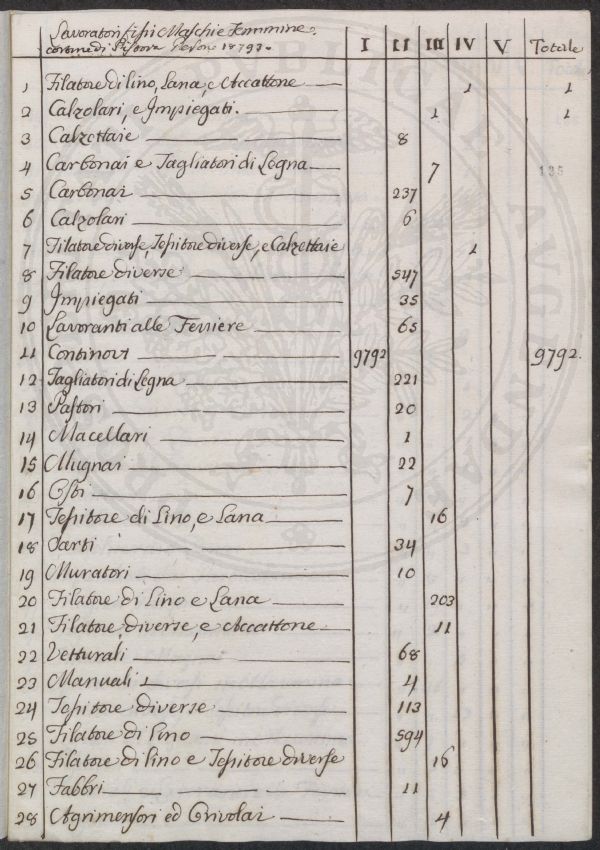 Lavoratori fissi Maschi e Femmine
I II III IV V Totale
1 Filatore di lino, Lana, e Accattone 1 1
2 Calzolari, e Impiegati. 1 1
3 Calzettaie 8
4 Carbonai e Tagliatori di Legna 7 135
5 Carbonai 237
6 Calzolari 6
7 Filatore diverse, Tessitore diverse, e Calzettaie 1
8 Filatore diverse 547
9 Impiegati 35
10 Lavoranti alle Ferriere 65
11 Continovi 9792 9792.
12 Tagliatori di Legna 221
13 Pastori 20
14 Macellari 1
15 Mugnai 22
16 Osti 7
17 Tessitore di Lino, e Lana 16
18 Sarti 34
19 Muratori 10
20 Filatore di Lino e Lana 203
21 Filatore, diverse, e Accattone 11
22 Vetturali 68
23 Manuali 4
24 Tessitore diverse 113
25 Filatore di lino 594
26 Filatore di lino e Tessitore diverse 16
27 Fabbri 11
28 Agrimensori ed 4